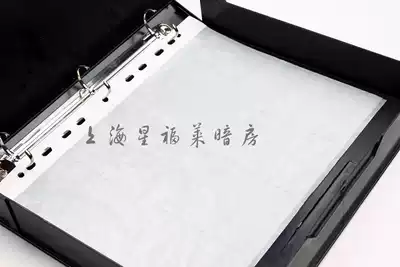 上海星福莱暗房